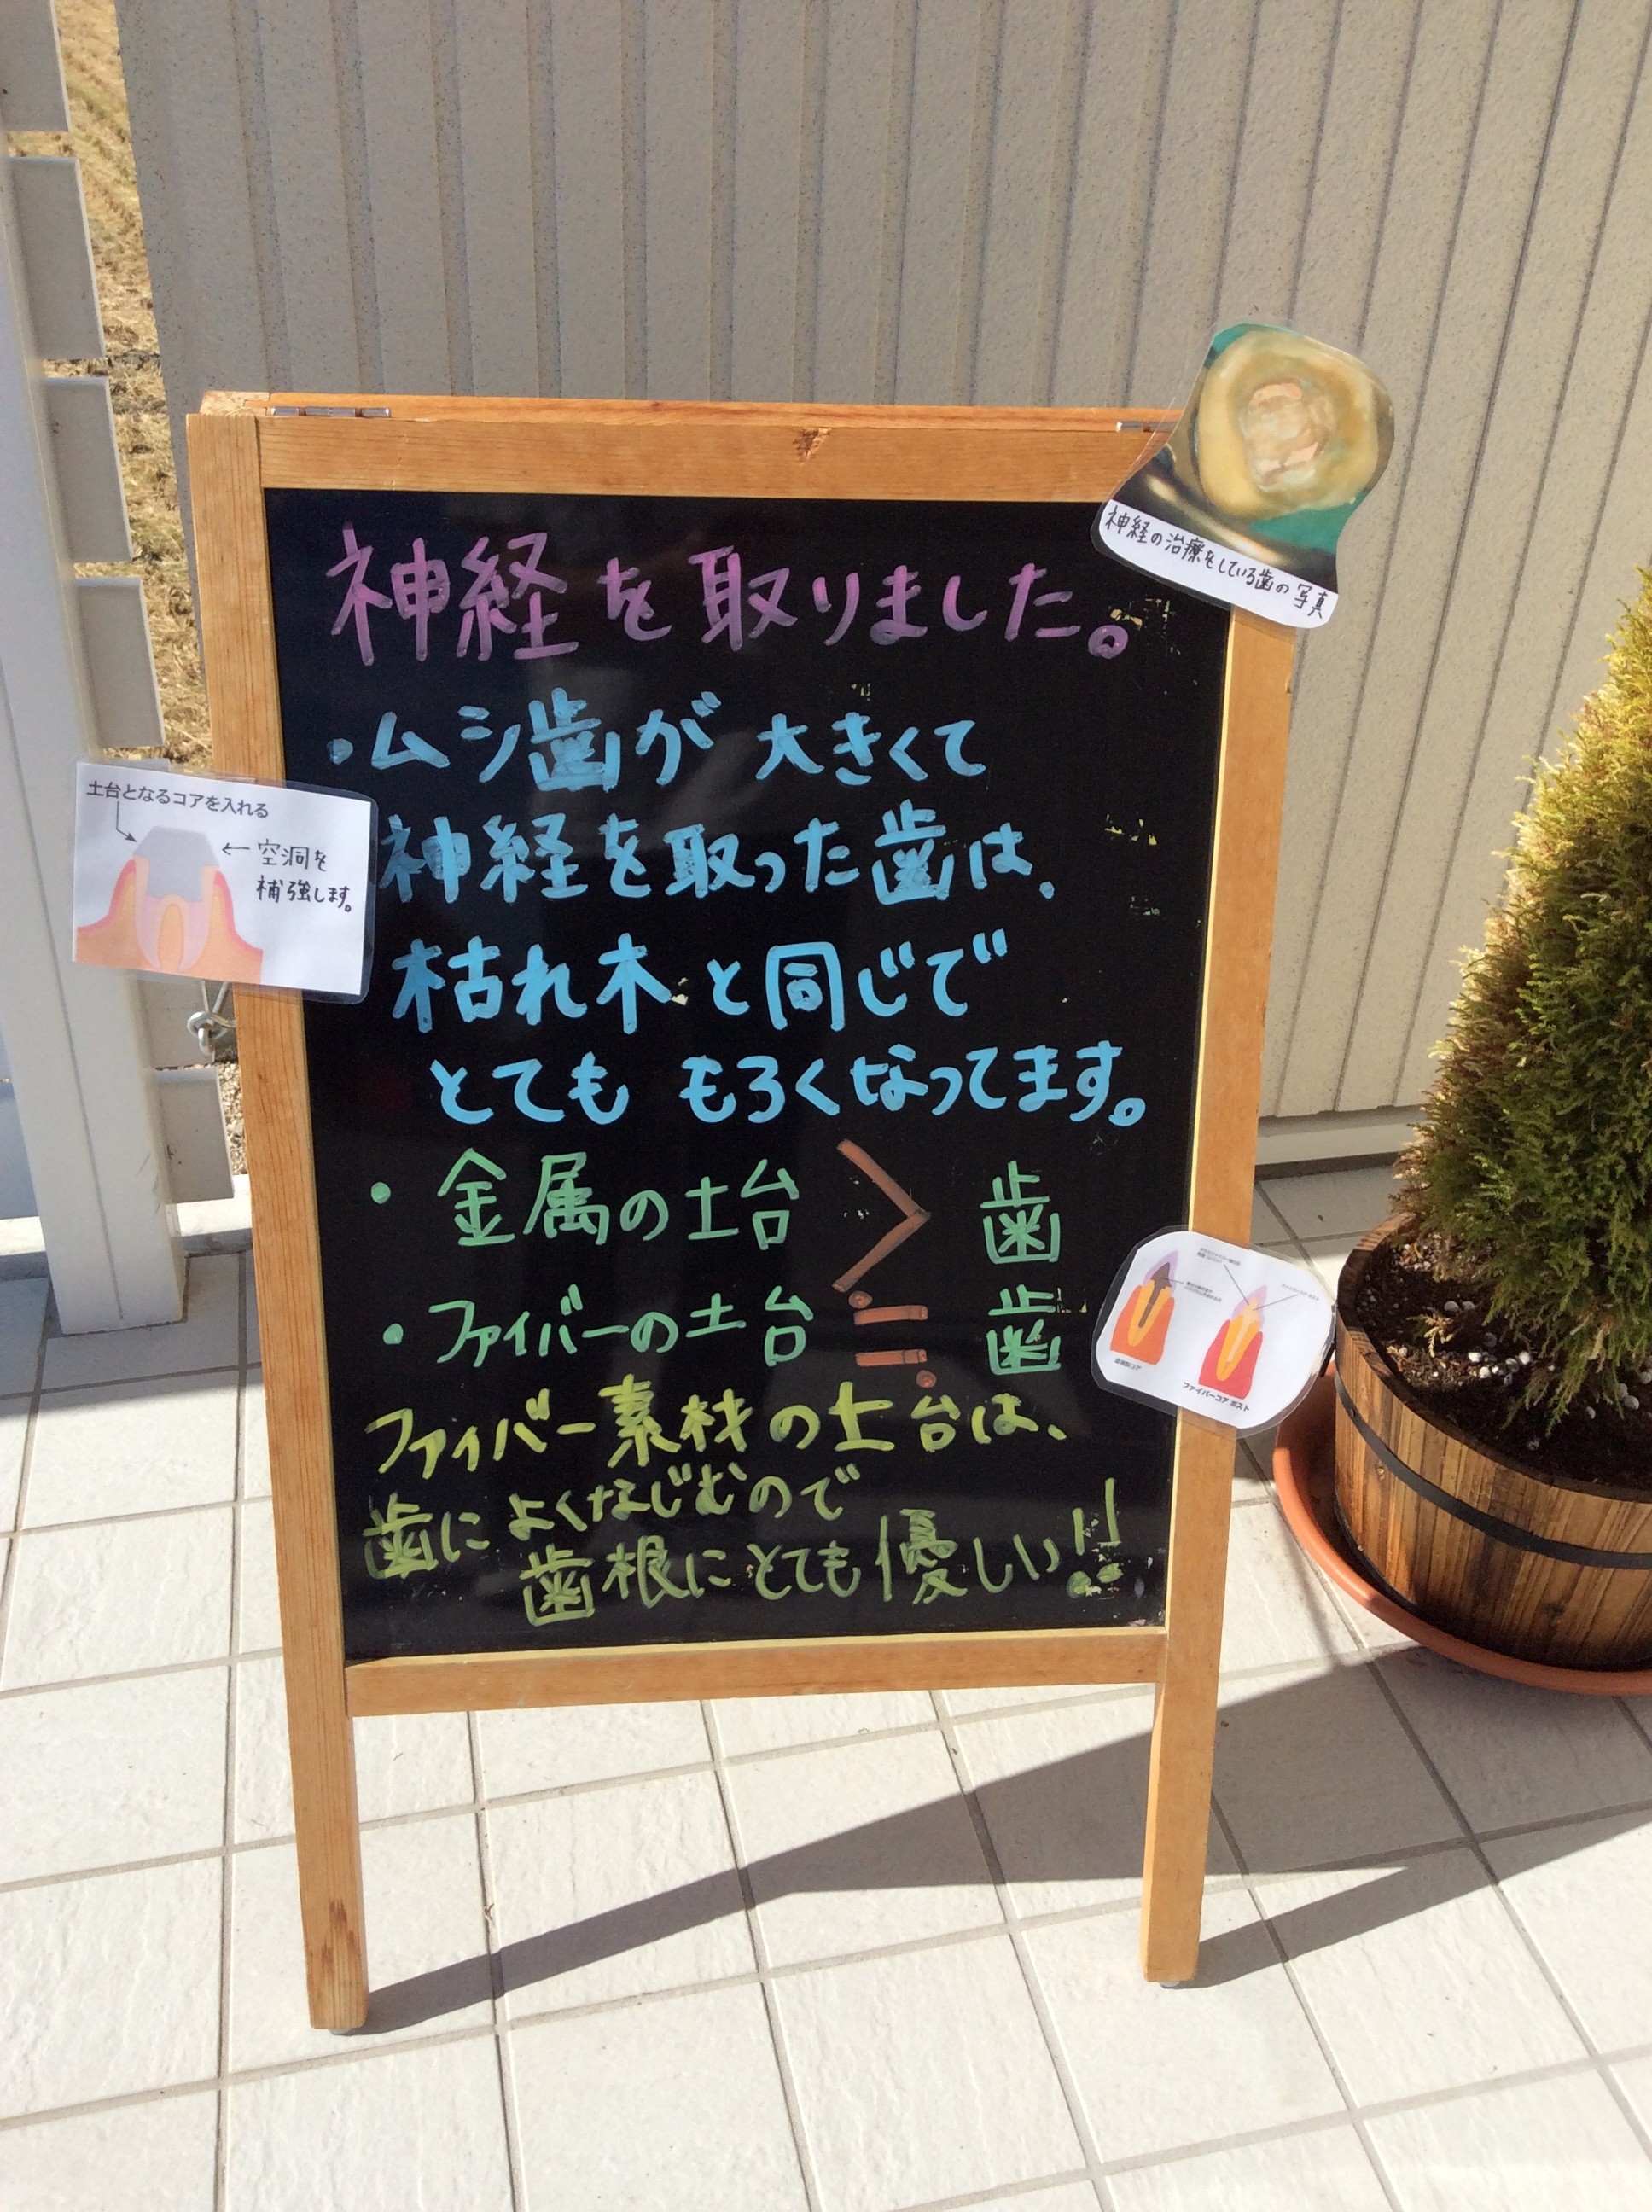 神経を取りました。
神経の治療をしている歯の写真
・ムシ歯が大きくて
神経を取った歯は、
枯れ木と同じで
とても もろくなってます。
土台となるコアを入れる
← 空洞を
補強します。
・金属の土台 > 歯
・ファイバーの土台 ≒ 歯
ファイバー素材の土台は、
歯によくなじむので
歯根にとても優しい!!
金属製コア
ファイバーコア ポスト